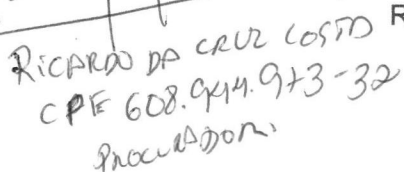 RICARDO DA CRUZ COSTA R
CPF 608.944.973-32
PROCURADOR.